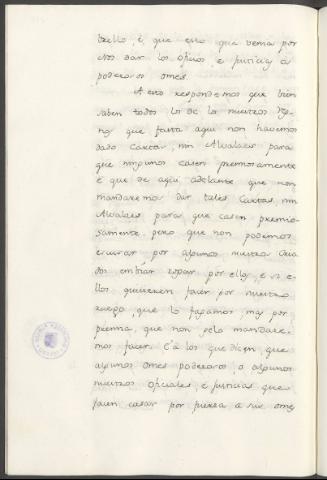 dello, è que esto que venia por
Nos dar los oficios, e justicia à
poderosos omes.
A esto respondemos que bien
saben todos los de los nuestros Reg-
nos que fasta aqui non havemos
dado Cartas, nin Alvalaes para
que ningunos casen premiosamente
è que de aqui adelante que non
mandaremos dar tales Cartas, nin
Alvalaes para que casen premio-
samente, pero que non podemos
escusar por algunos nuestros Cria-
dos embiar rogar por ello, e si e-
llos quisieren facer por nuestro
ruego, que lo fagamos, mas por
premia, que non gelo mandare-
mos facer. E à los que dicen que
algunos omes poderosos, o algunos
nuestros oficiales, e justicias que
facen casar por fuerza à sus ome